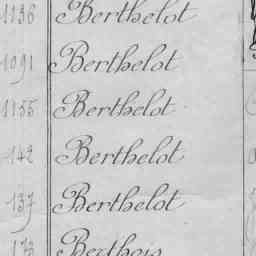 1136 Berthelot
1091 Berthelot
1155 Berthelot
142 Berthelot
137 Berthelot
173 Berthois